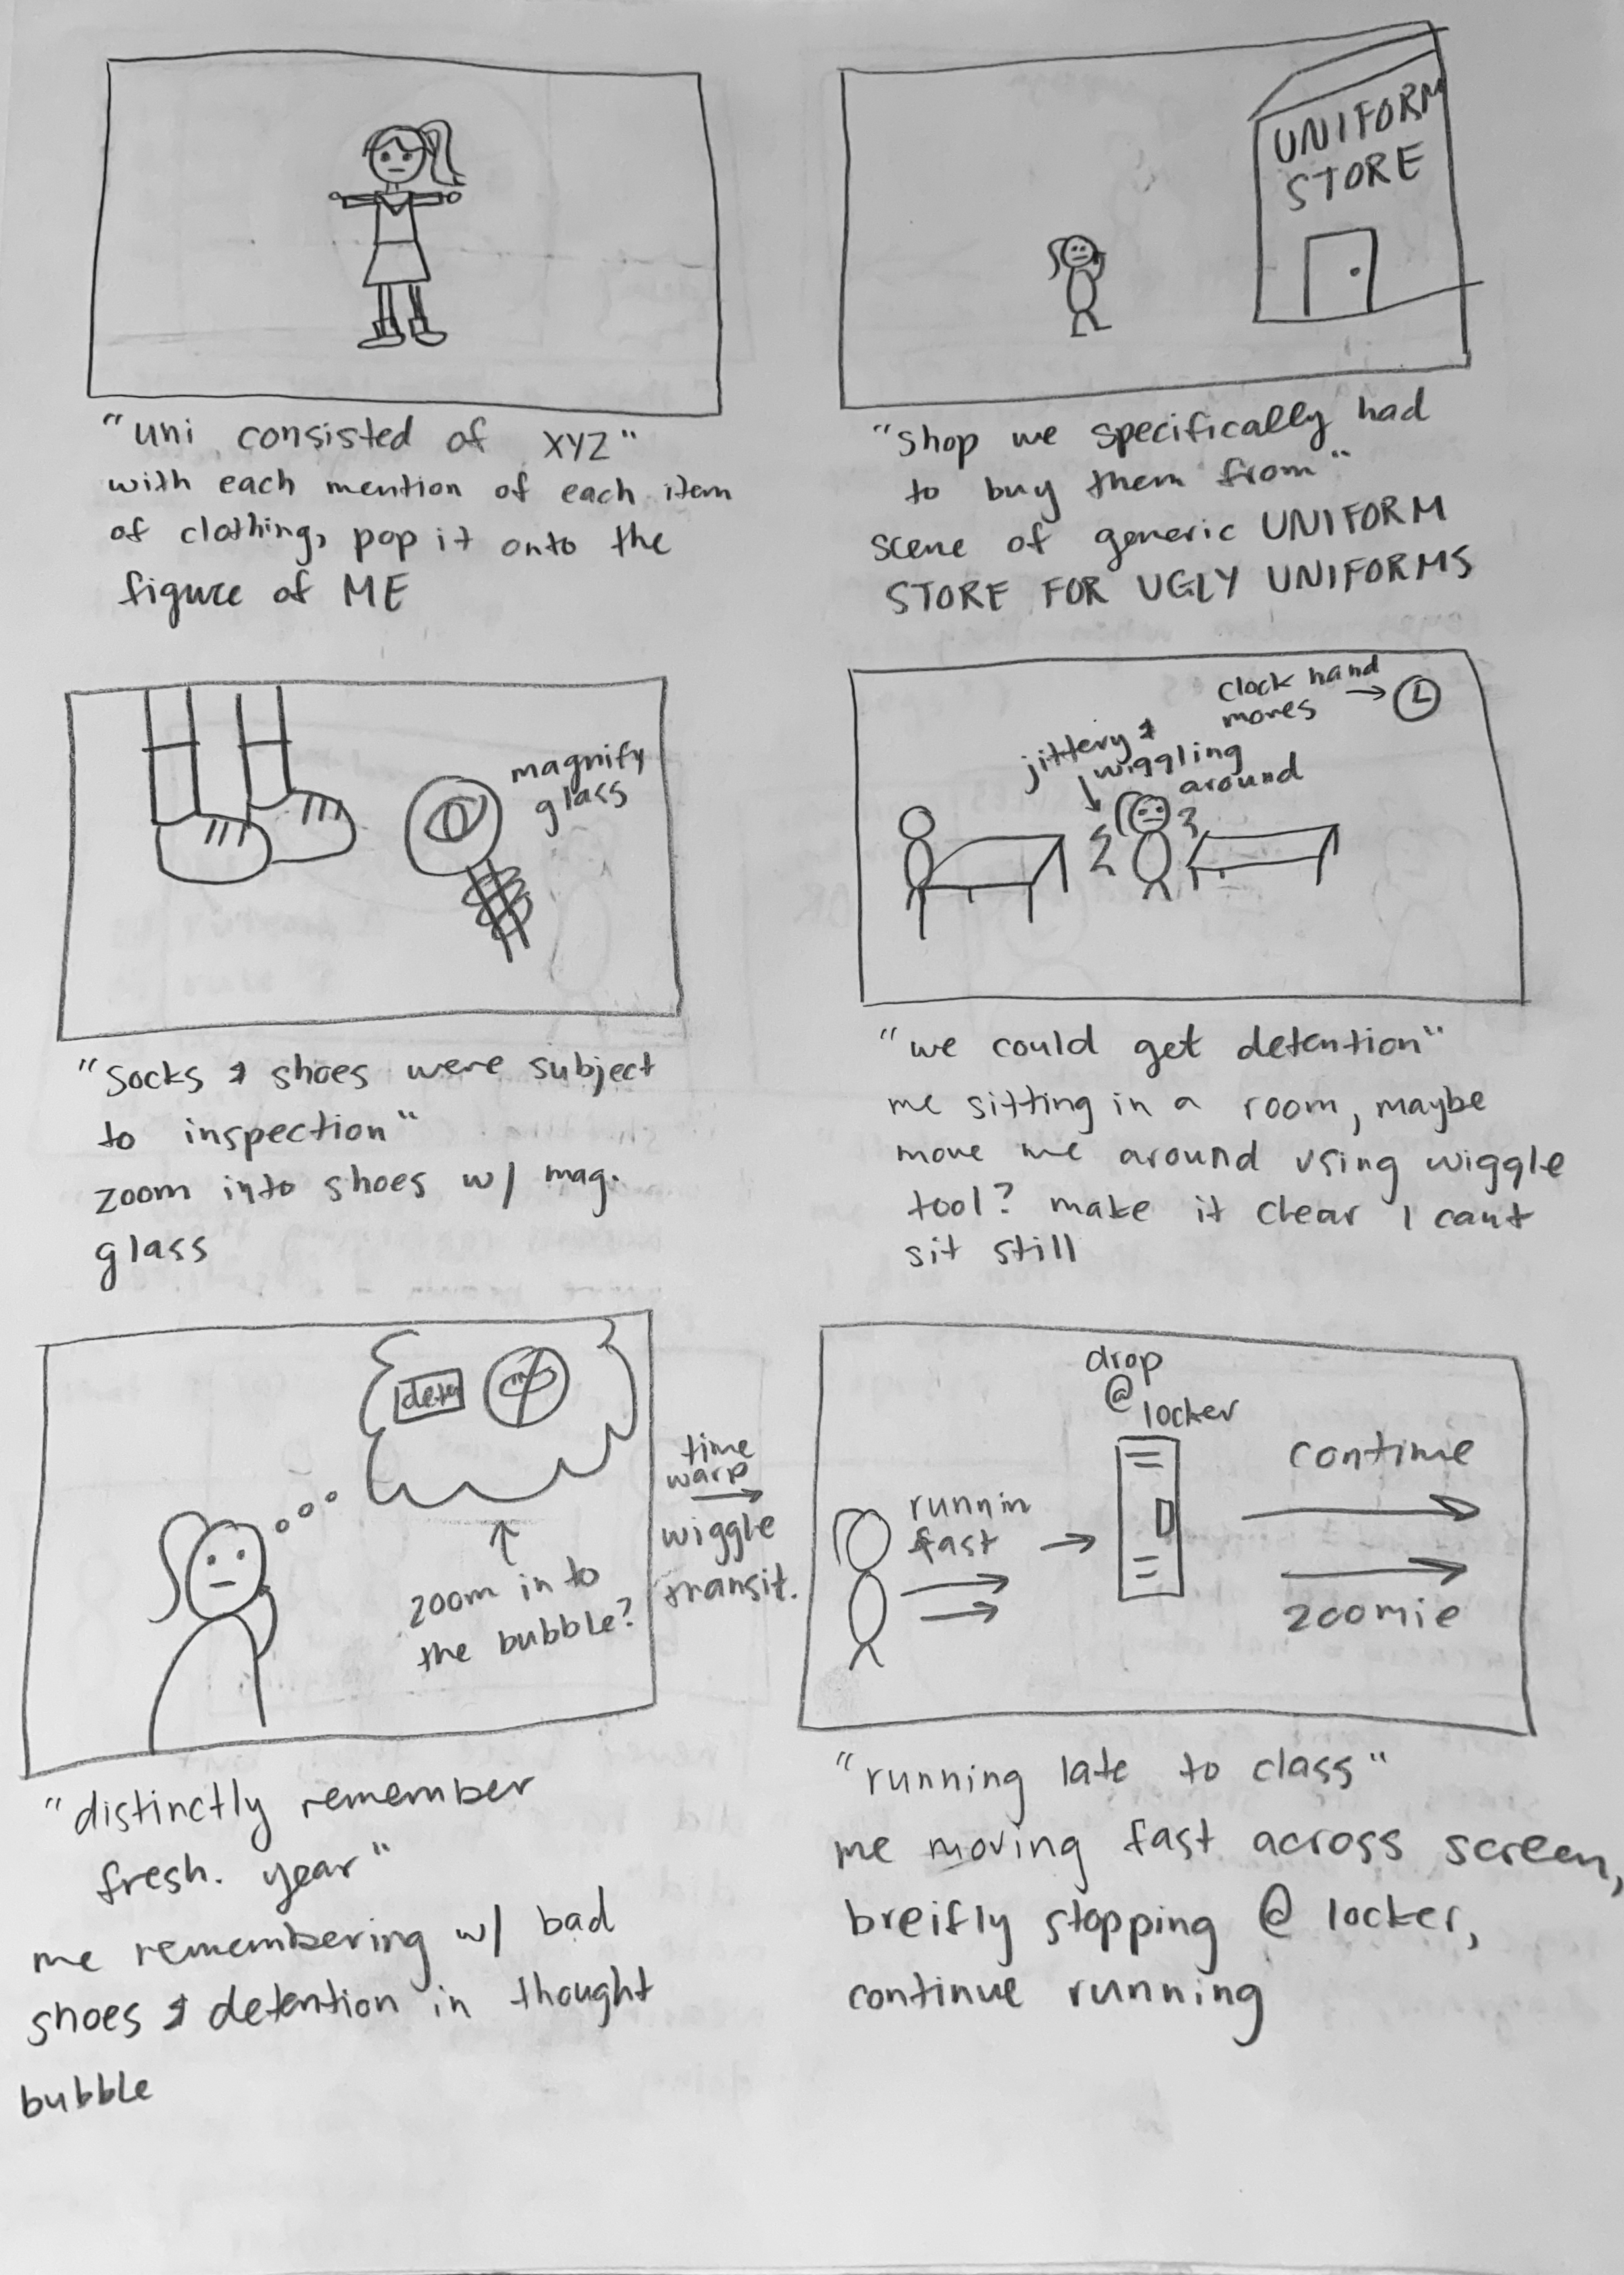 "uni consisted of XYZ"
with each mention of each item
of clothing, pop it onto the
figure of ME
UNIFORM
STORE
"shop we specifically had
to buy them from"
scene of generic UNIFORM
STORE FOR UGLY UNIFORMS
magnify
glass
"socks & shoes were subject
to inspection"
zoom into shoes w/ mag.
glass
clock hand
moves
jittery &
wiggling
around
"we could get detention"
me sitting in a room, maybe
move me around using wiggle
tool? make it clear I cant
sit still
zoom in to
the bubble?
"distinctly remember
fresh. year"
me remembering w/ bad
shoes & detention in thought
bubble
time
warp
wiggle
transit.
drop
@
locker
runnin
fast
continue
zoomie
"running late to class"
me moving fast across screen,
breifly stopping @ locker,
continue running